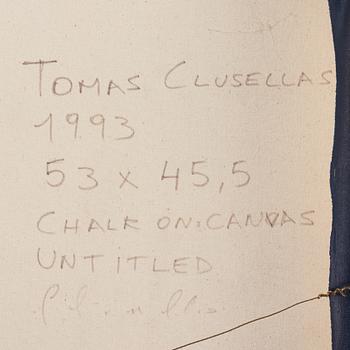 TOMAS CLUSELLAS
1993
53 x 45,5
CHALK ON:CANVAS
UNTITLED